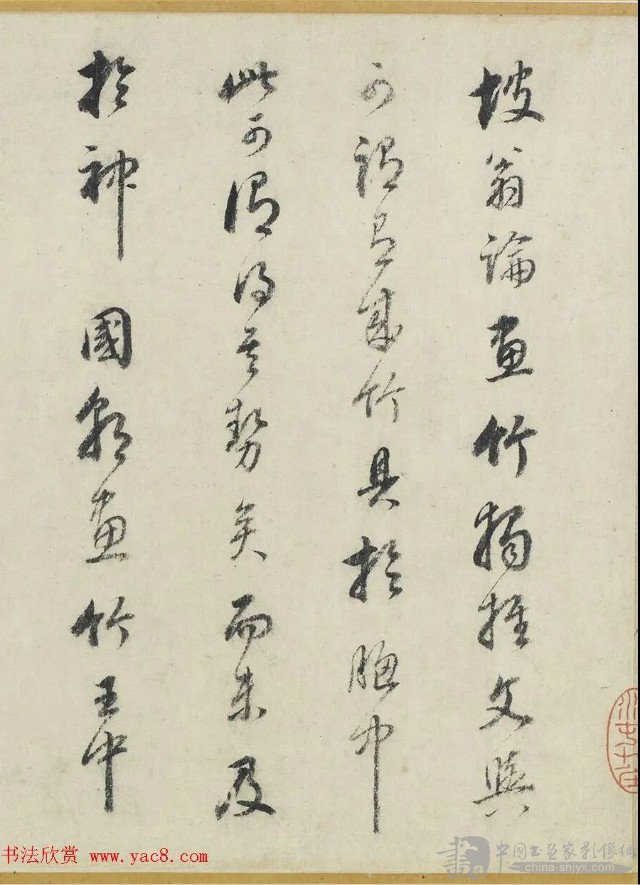 坡翁論畫竹獨推文與
可謂其成竹具於胸中
此可謂得其勢矣而未及
於神 國朝畫竹王中
书法欣赏 www.yac8.com
中国工艺家影像网
china-shjyx.com